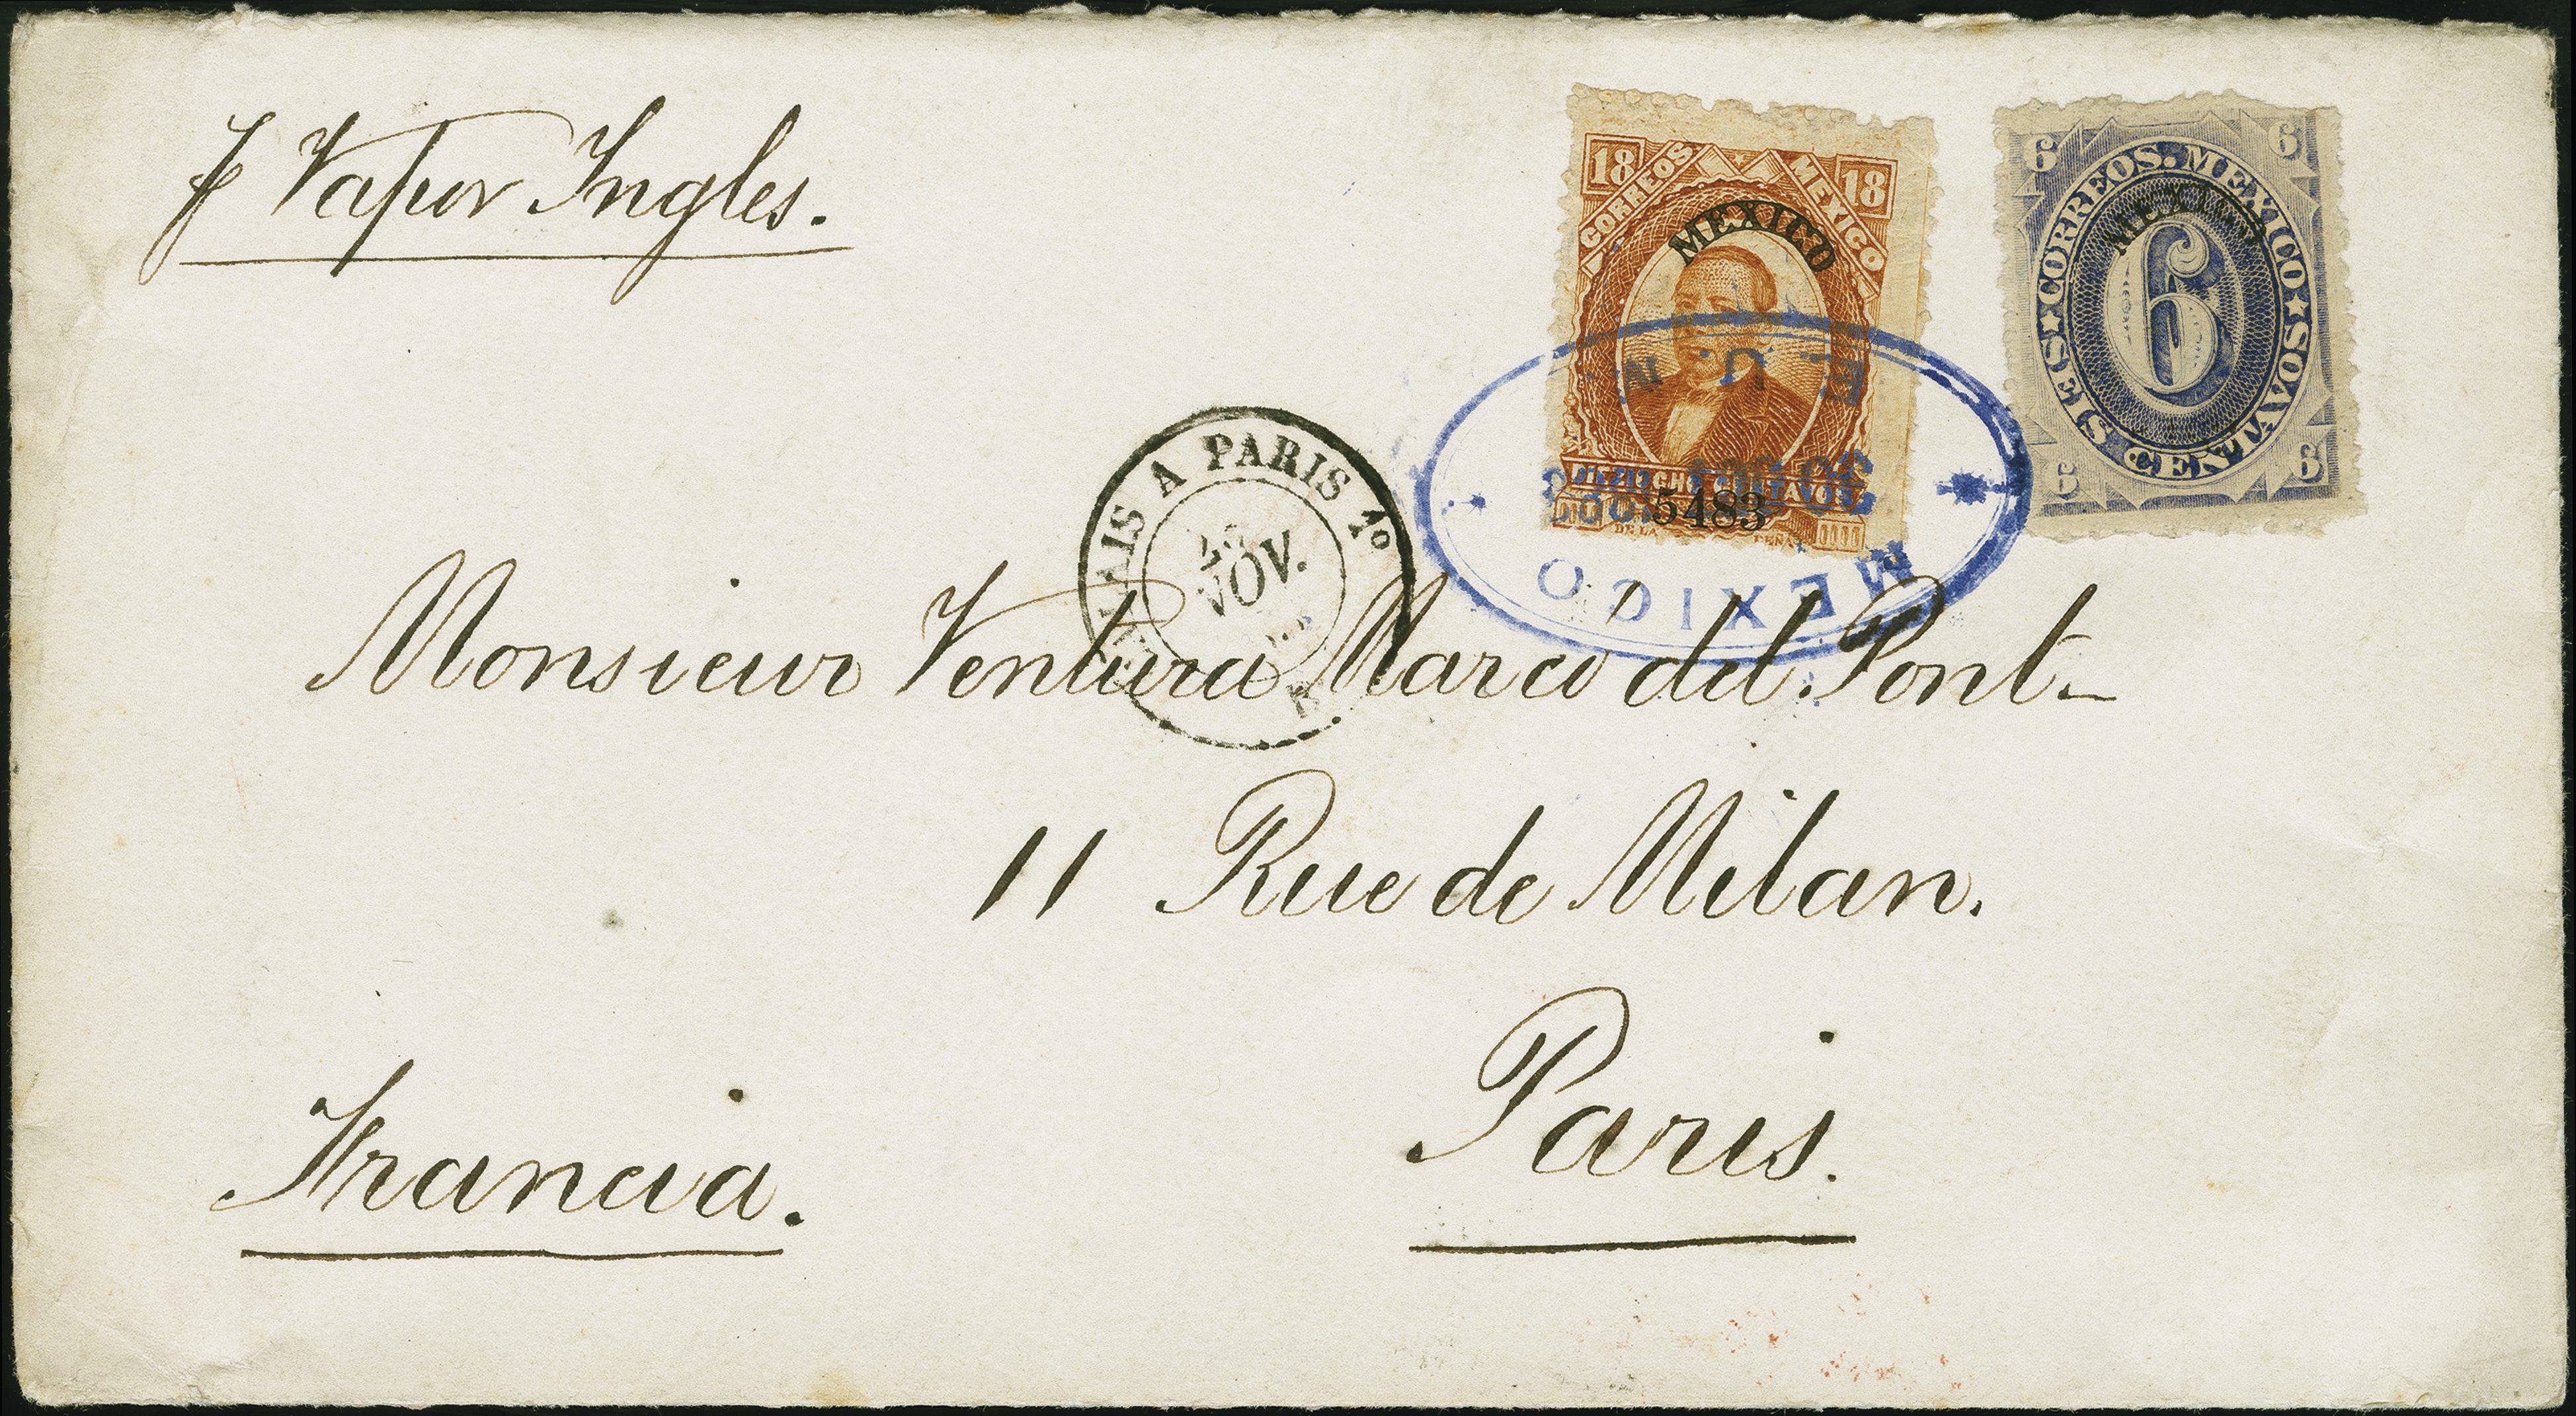 p Vapor Ingles.
18 CORREOS MEXICO 18
MEXICO
DIEZIOCHO CENTAVOS
5483
6 6
CORREOS. MEXICO
MEXICO
6
SEIS CENTAVOS
6 6
E. U. M
MEXICO
CALAIS A PARIS 1º
NOV.
Monsieur Ventura Marco del Pont
11 Rue de Milan.
Paris.
Francia.